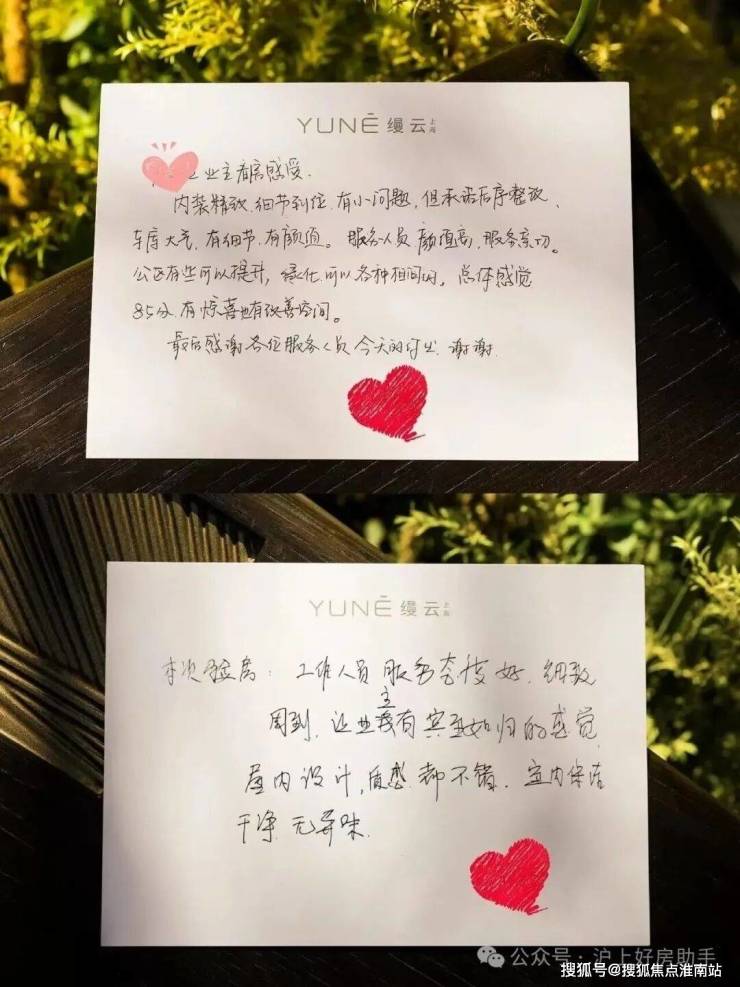 YUNĒ 缦云 上海
业主看房感受.
内装精致.细节到位.有小问题,但承诺后序整改、
车库大气,有细节.有颜值。服务人员颜值高,服务亲切。
公区有些可以提升,绿化可以各种相间的。总体感觉
85分.有惊喜也有改善空间。
最后感谢各位服务人员今天的付出.谢谢.
YUNĒ 缦云 上海
本次验房:工作人员服务态度好.细致
周到.让业主有宾至如归的感觉
屋内设计,质感都不错.室内保洁
干净 无异味.
公众号·沪上好房助手
搜狐号@搜狐焦点淮南站